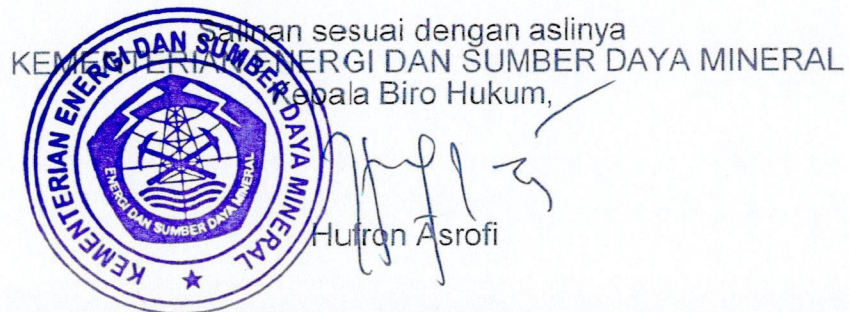 Salinan sesuai dengan aslinya
KEMENTERIAN ENERGI DAN SUMBER DAYA MINERAL
Kepala Biro Hukum,
KEMENTERIAN ENERGI DAN SUMBER DAYA MINERAL
ENERGI DAN SUMBER DAYA MINERAL
Hufron Asrofi